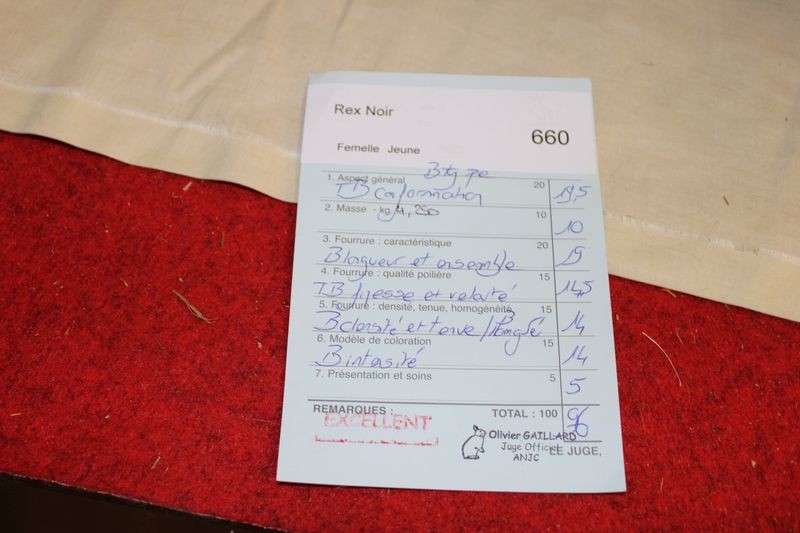 Rex Noir
660
Femelle Jeune
1. Aspect général B type 20
TB conformation 19,5
2. Masse - kg 4,250 10
10
3. Fourrure : caractéristique 20
B longueur et ensemble 19
4. Fourrure : qualité poilière 15
TB finesse et velouté 14,5
5. Fourrure : densité, tenue, homogénéité 15
B densité et tenue / B 14
6. Modèle de coloration 15
B intensité 14
7. Présentation et soins 5
5
REMARQUES : TOTAL : 100 96
EXCELLENT
Olivier GAILLARD
Juge Officiel
ANJC
LE JUGE,